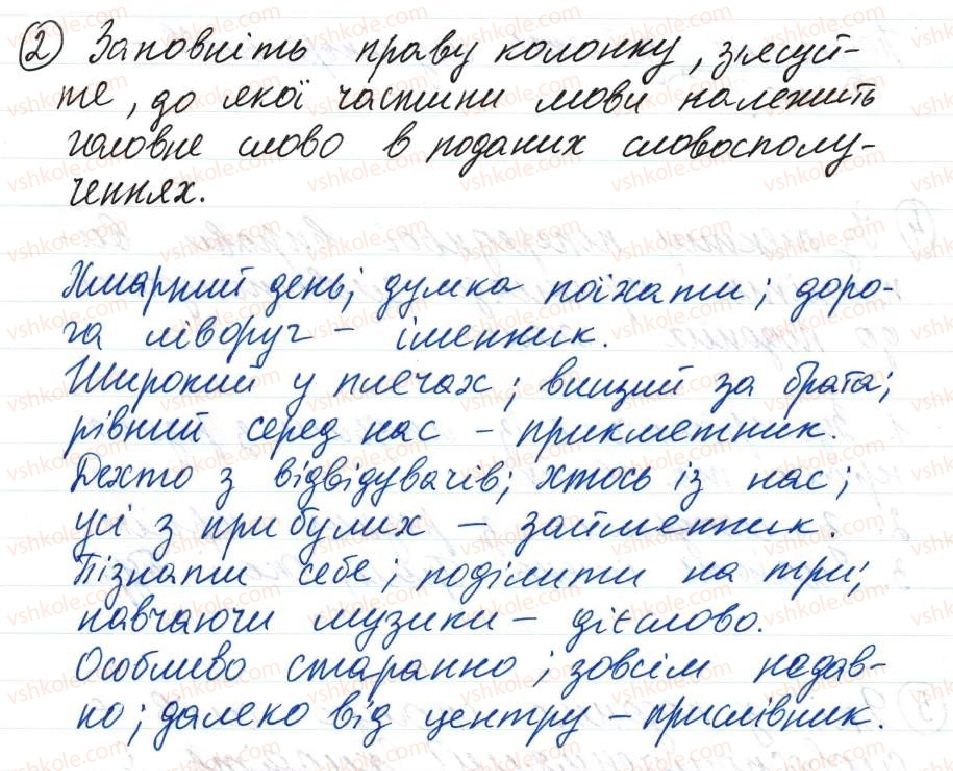 2 Заповніть праву колонку, з'ясуй-
те, до якої частини мови належить
головне слово в поданих словосполу-
ченнях.
Хмарний день; думка поїхати; доро-
га ліворуч – іменник.
Широкий у плечах; вищий за брата;
рівний серед нас – прикметник.
Дехто з відвідувачів; хтось із нас;
усі з прибулих – займенник.
Пізнати себе; поділити на три;
навчаючи музики – дієслово.
Особливо старанно; зовсім надав-
но; далеко від центру – прислівник.